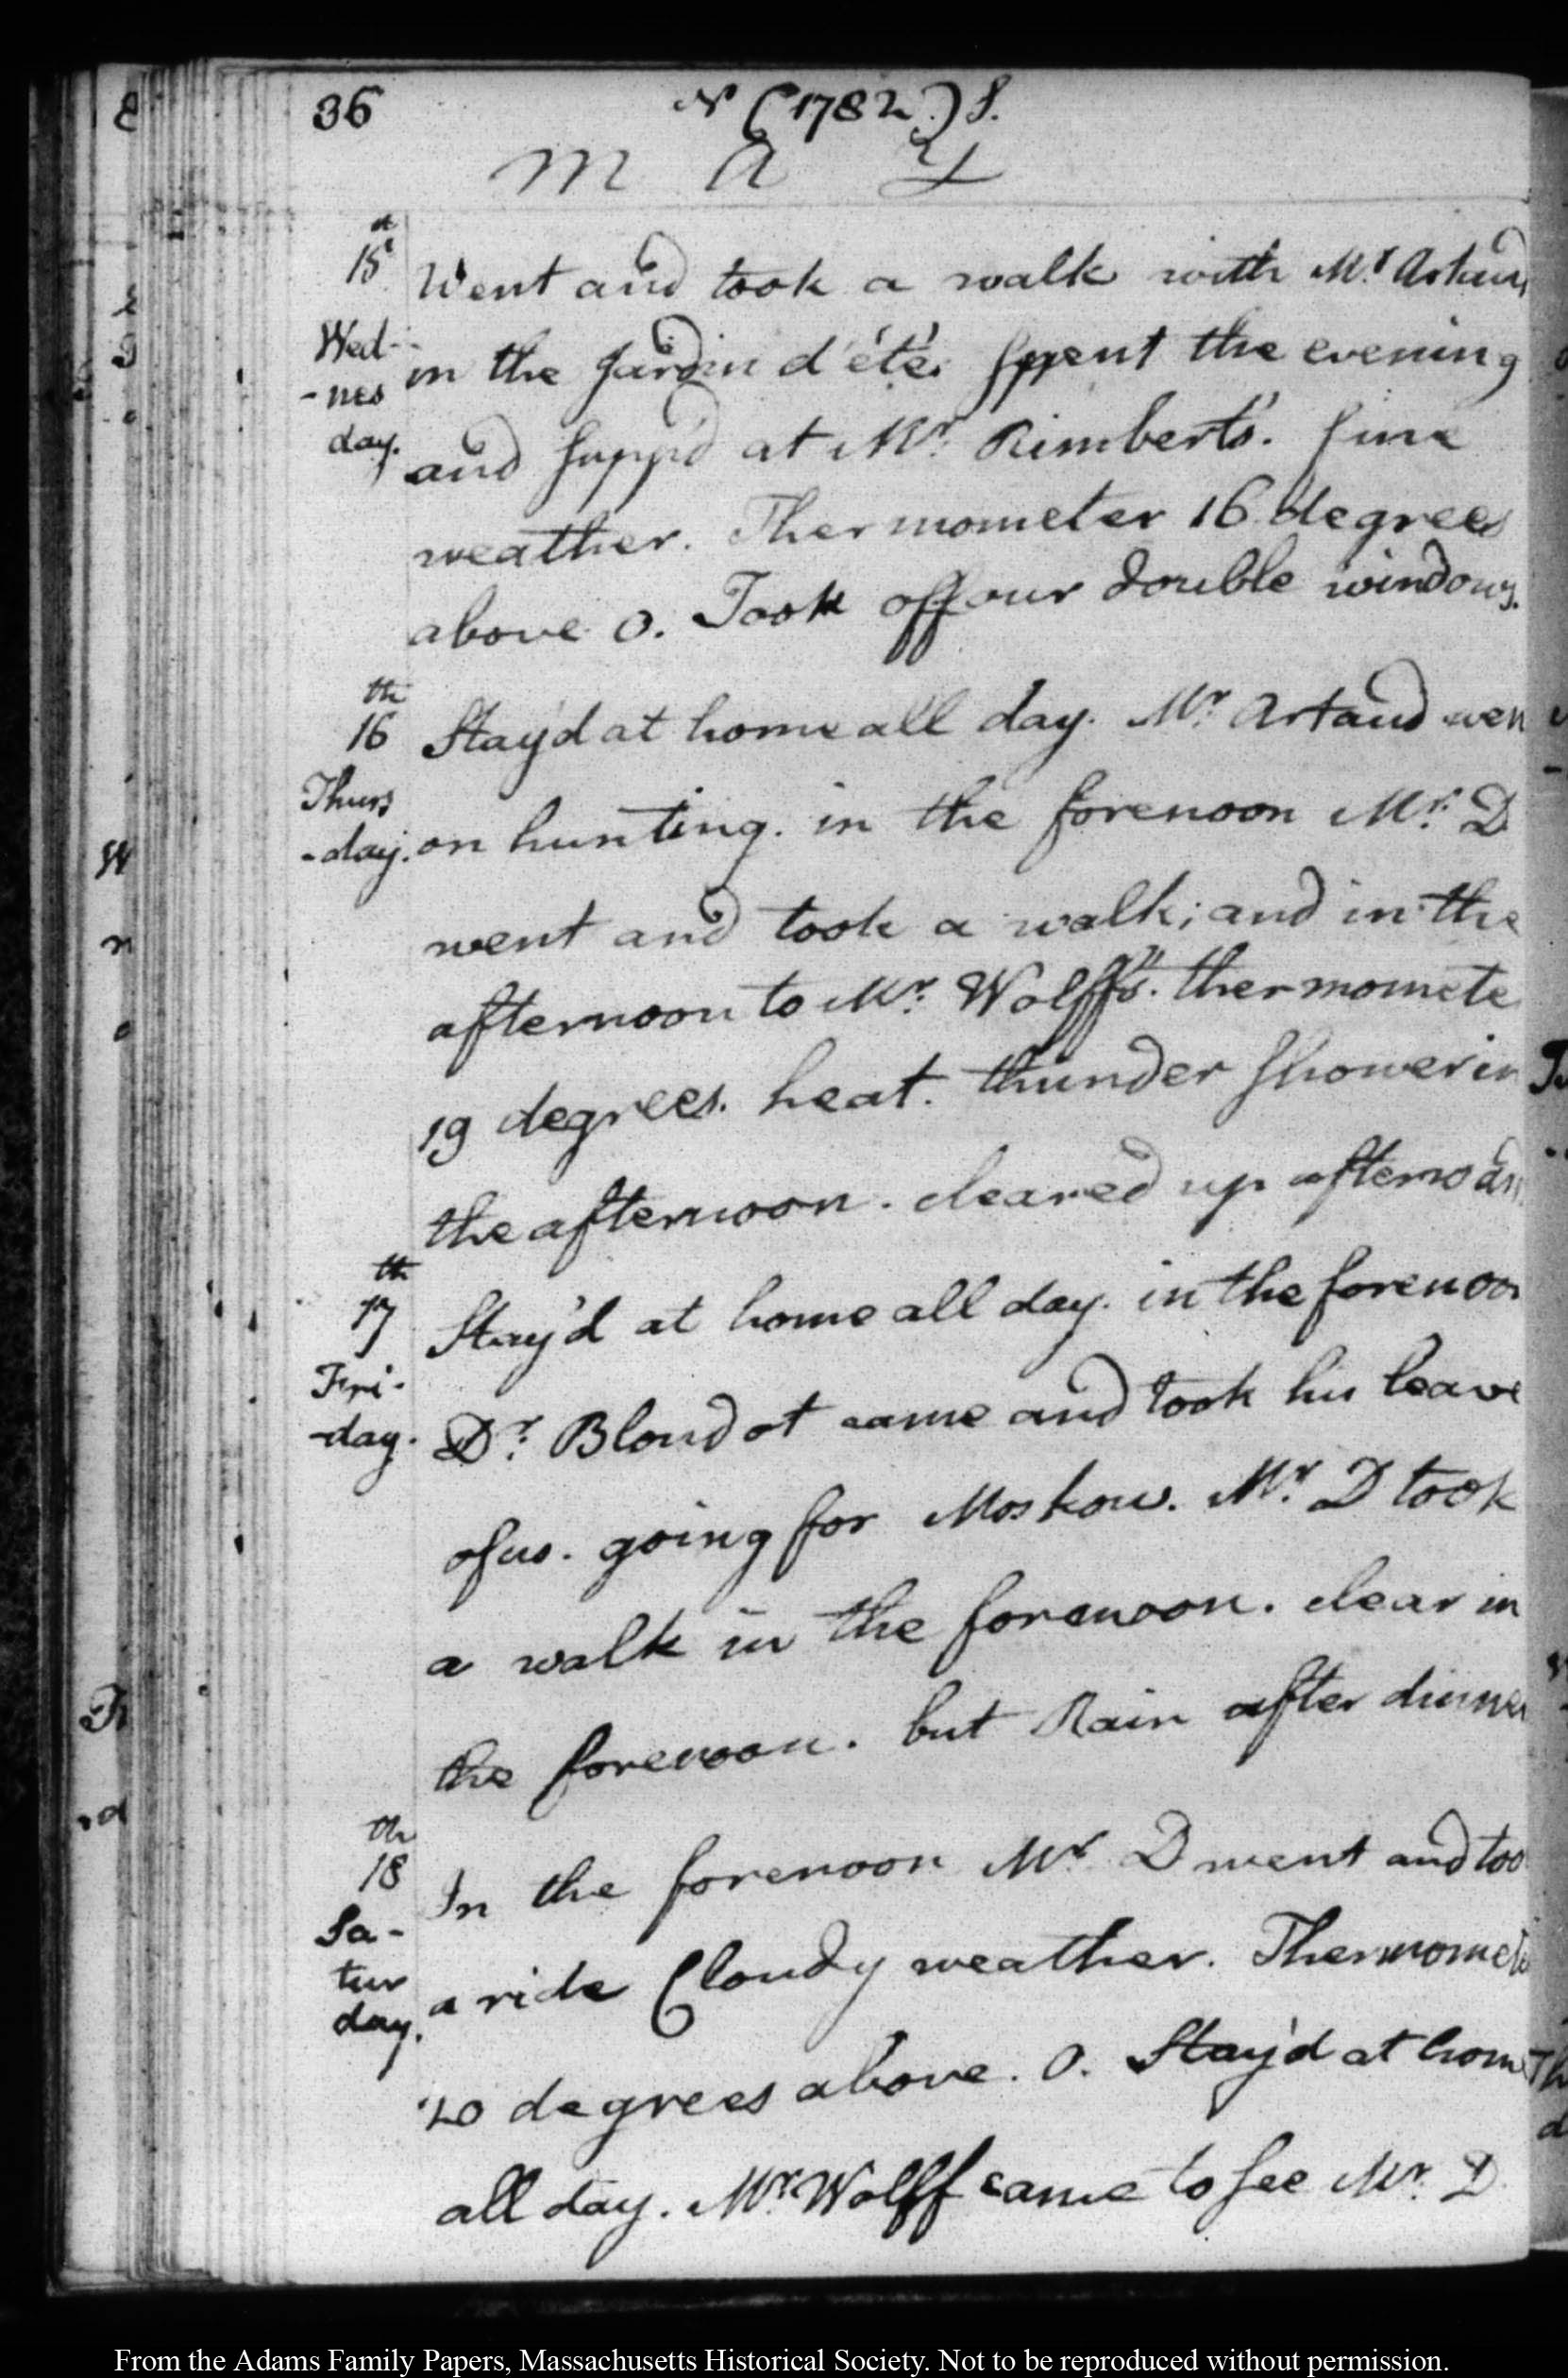 36
N (1782.) S.
M A Y
15 Went and took a walk with Mr. Artaud
Wed- in the jardin d'été. Spent the evening
-nes
day. and supp'd at Mr. Rimbert's. fine
weather. Thermometer 16 degrees
above 0. Took off our double windows.
th
16 Stay'd at home all day. Mr. Artaud wen
Thurs
-day. on hunting. in the forenoon Mr. D
went and took a walk; and in the
afternoon to Mr. Wolff's. thermomete
19 degrees. heat. thunder shower in
the afternoon. cleared up afterwards
th
17 Stay'd at home all day. in the forenoon
Fri-
-day. Dr. Bloudot came and took his leave
of us. going for Moskow. Mr. D took
a walk in the forenoon. clear in
the forenoon. but Rain after dinner
th
18 In the forenoon Mr. D went and too
Sa-
tur a ride Cloudy weather. Thermomete
day.
20 degrees above. 0. Stay'd at home
all day. Mr. Wolff came to see Mr. D
From the Adams Family Papers, Massachusetts Historical Society. Not to be reproduced without permission.